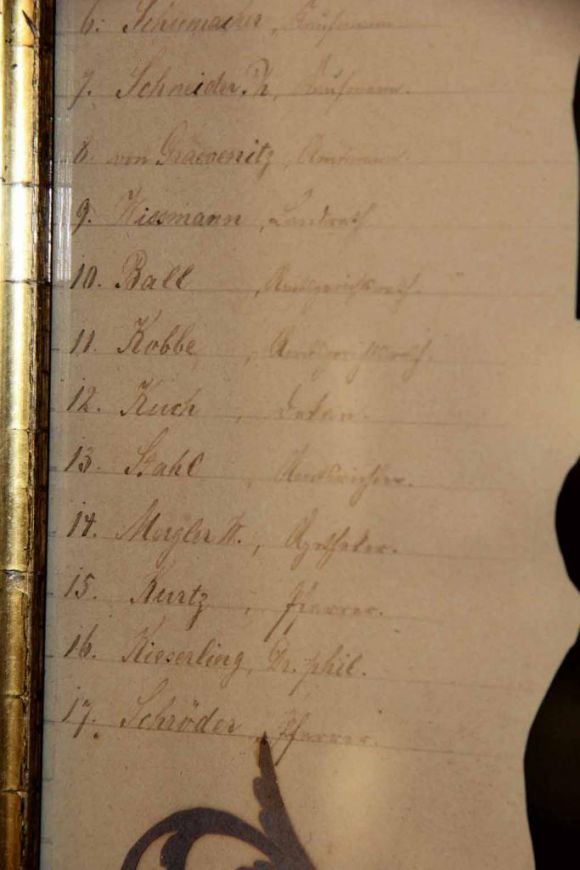 6. Schumacher, Kaufmann.
7. Schneider. Th, Kaufmann.
8. von Graevenitz, Amtmann.
9. Wissmann, Landrath
10. Ball, Amtsgerichtsrath.
11. Kobbe, Amtsgerichtsrath.
12. Kuch, Dekan.
13. Stahl, Amtsrichter.
14. W., Apotheker.
15. Kurtz, Pfarrer.
16. Kieserling, Dr. phil.
17. Schröder, Pfarrer.